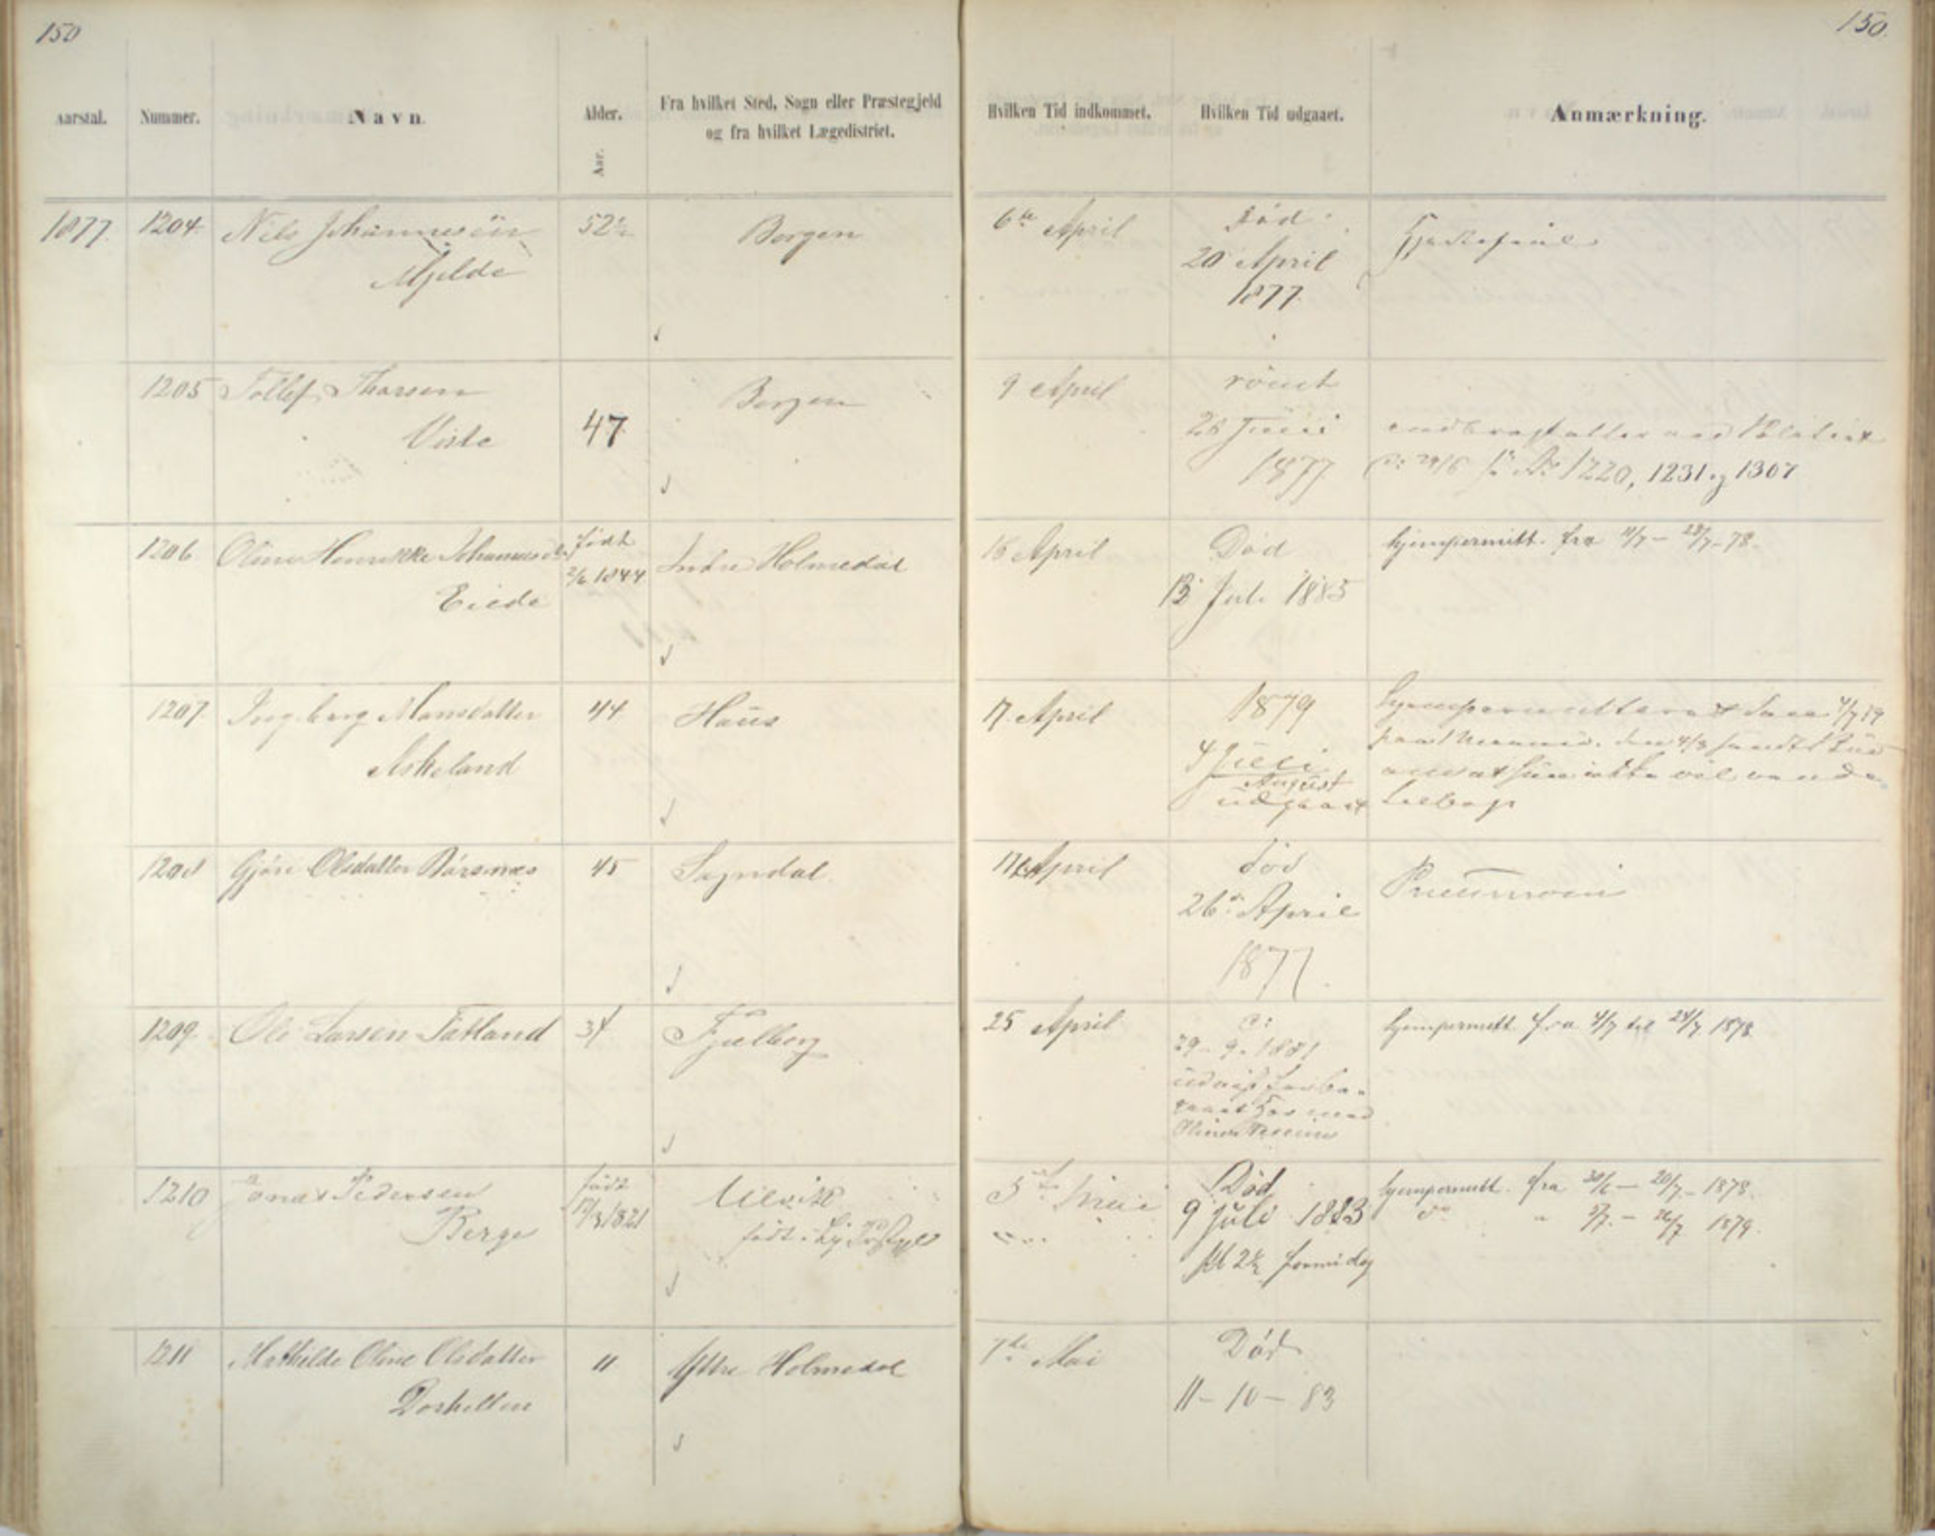 150
150.
Aarstal.
Nummer.
Navn.
Alder.
Aar.
Fra hvilket Sted, Sogn eller Præstegjeld
og fra hvilket Lægedistrict.
Hvilken Tid indkommet.
Hvilken Tid udgaaet.
Anmærkning.
1877. 1204. Nils Johannesen 52½ Bergen 6te April Død
Mjelde 20 April
1877.
1205 Tollef Thorsen 47 Bergen 9 April rømt
Viste 28 Juni
1877. No 1220, 1231 og 1307
1206 Oline Henrikke Johannesdtr. født Indre Holmedal 16 April Død hjempermitt. fra 11/7 – 28/7 – 78.
Eide 2/6 1844 13 Juli 1885
1207. Ingeborg Monsdatter 44 Haus 17 April 1879 hjempermitteret 4/7 79
Askeland 4 Juli
August ikke vil vende
udgaaet tilbage
1208 Gjøri Olsdatter Børsnæs 45 Sogndal 17de April død Pneumoni
26de April
1877.
1209. Ole Larsen Tatland 34 Fjelberg 25 April hjempermitt. fra 4/7 til 24/7 1878.
29 – 9 – 1881
1210 Jonas Pedersen født Ulvik 5te Mai Død hjempermitt. fra 30/6 – 20/7 – 1878.
Berge 17/3 1821 født i 9 juli 1883 do " 5/7. – 26/7 1879.
kl 2½ formidag
1211 Mathilde Oline Olsdatter 11 Yttre Holmedal 7de Mai Død
Dorhellen 11 – 10 – 83